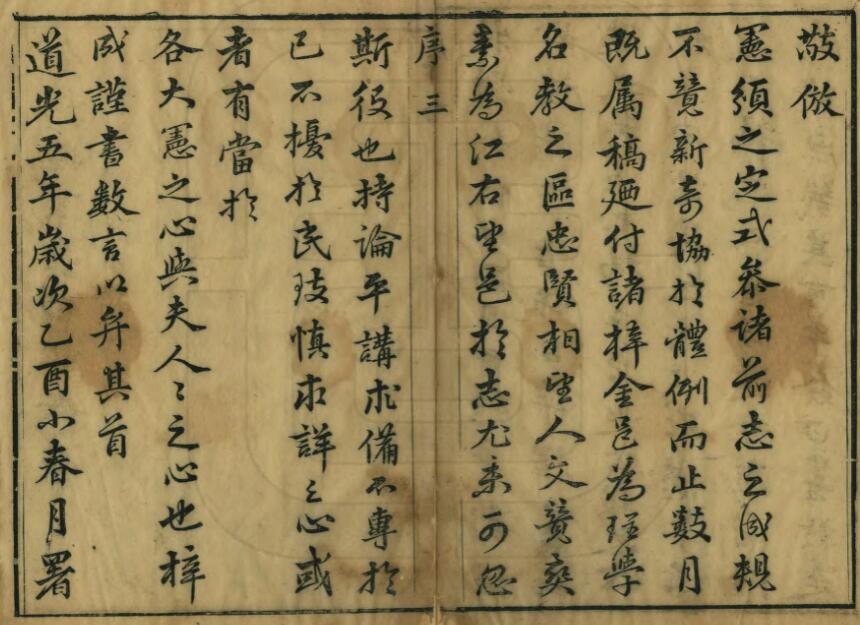 敬倣
憲頒之定式叅諸前志之成規
不競新奇協於體例而止數月
既属稿廼付諸梓金邑為理學
名教之區忠賢相望人文蔚奕
素為江右望邑於志尤未可忽
序三
斯役也持論平講求備不專於
已不擾於民玆慎求詳之心或
者有當於
各大憲之心與夫人〻之心也梓
成謹書数言以弁其首
道光五年歲次乙酉小春月署